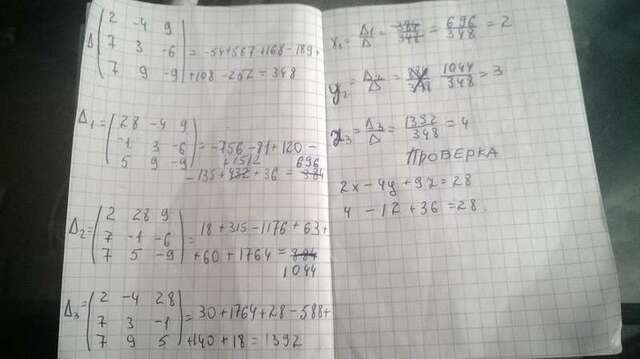 Δ (2 -4 9
7 3 -6
7 9 -9) = -54+567+168-189+
+108-252=348
Δ1 = (28 -4 9
-1 3 -6
5 9 -9) = -756-81+120-
-135+432+36 = 384
+1512 696
Δ2 = (2 28 9
7 -1 -6
7 5 -9) = 18+315-1176+63+
+60+1764=884
1044
Δ3 = (2 -4 28
7 3 -1
7 9 5) = 30+1764+28-588+
+140+18=1392
x1 = Δ1/Δ = 384/348 = 696/348 = 2
y2 = Δ2/Δ = 884/348 1044/348 = 3
z3 = Δ3/Δ = 1392/348 = 4
ПРОВЕРКА
2x-4y+9z=28
4-12+36=28.